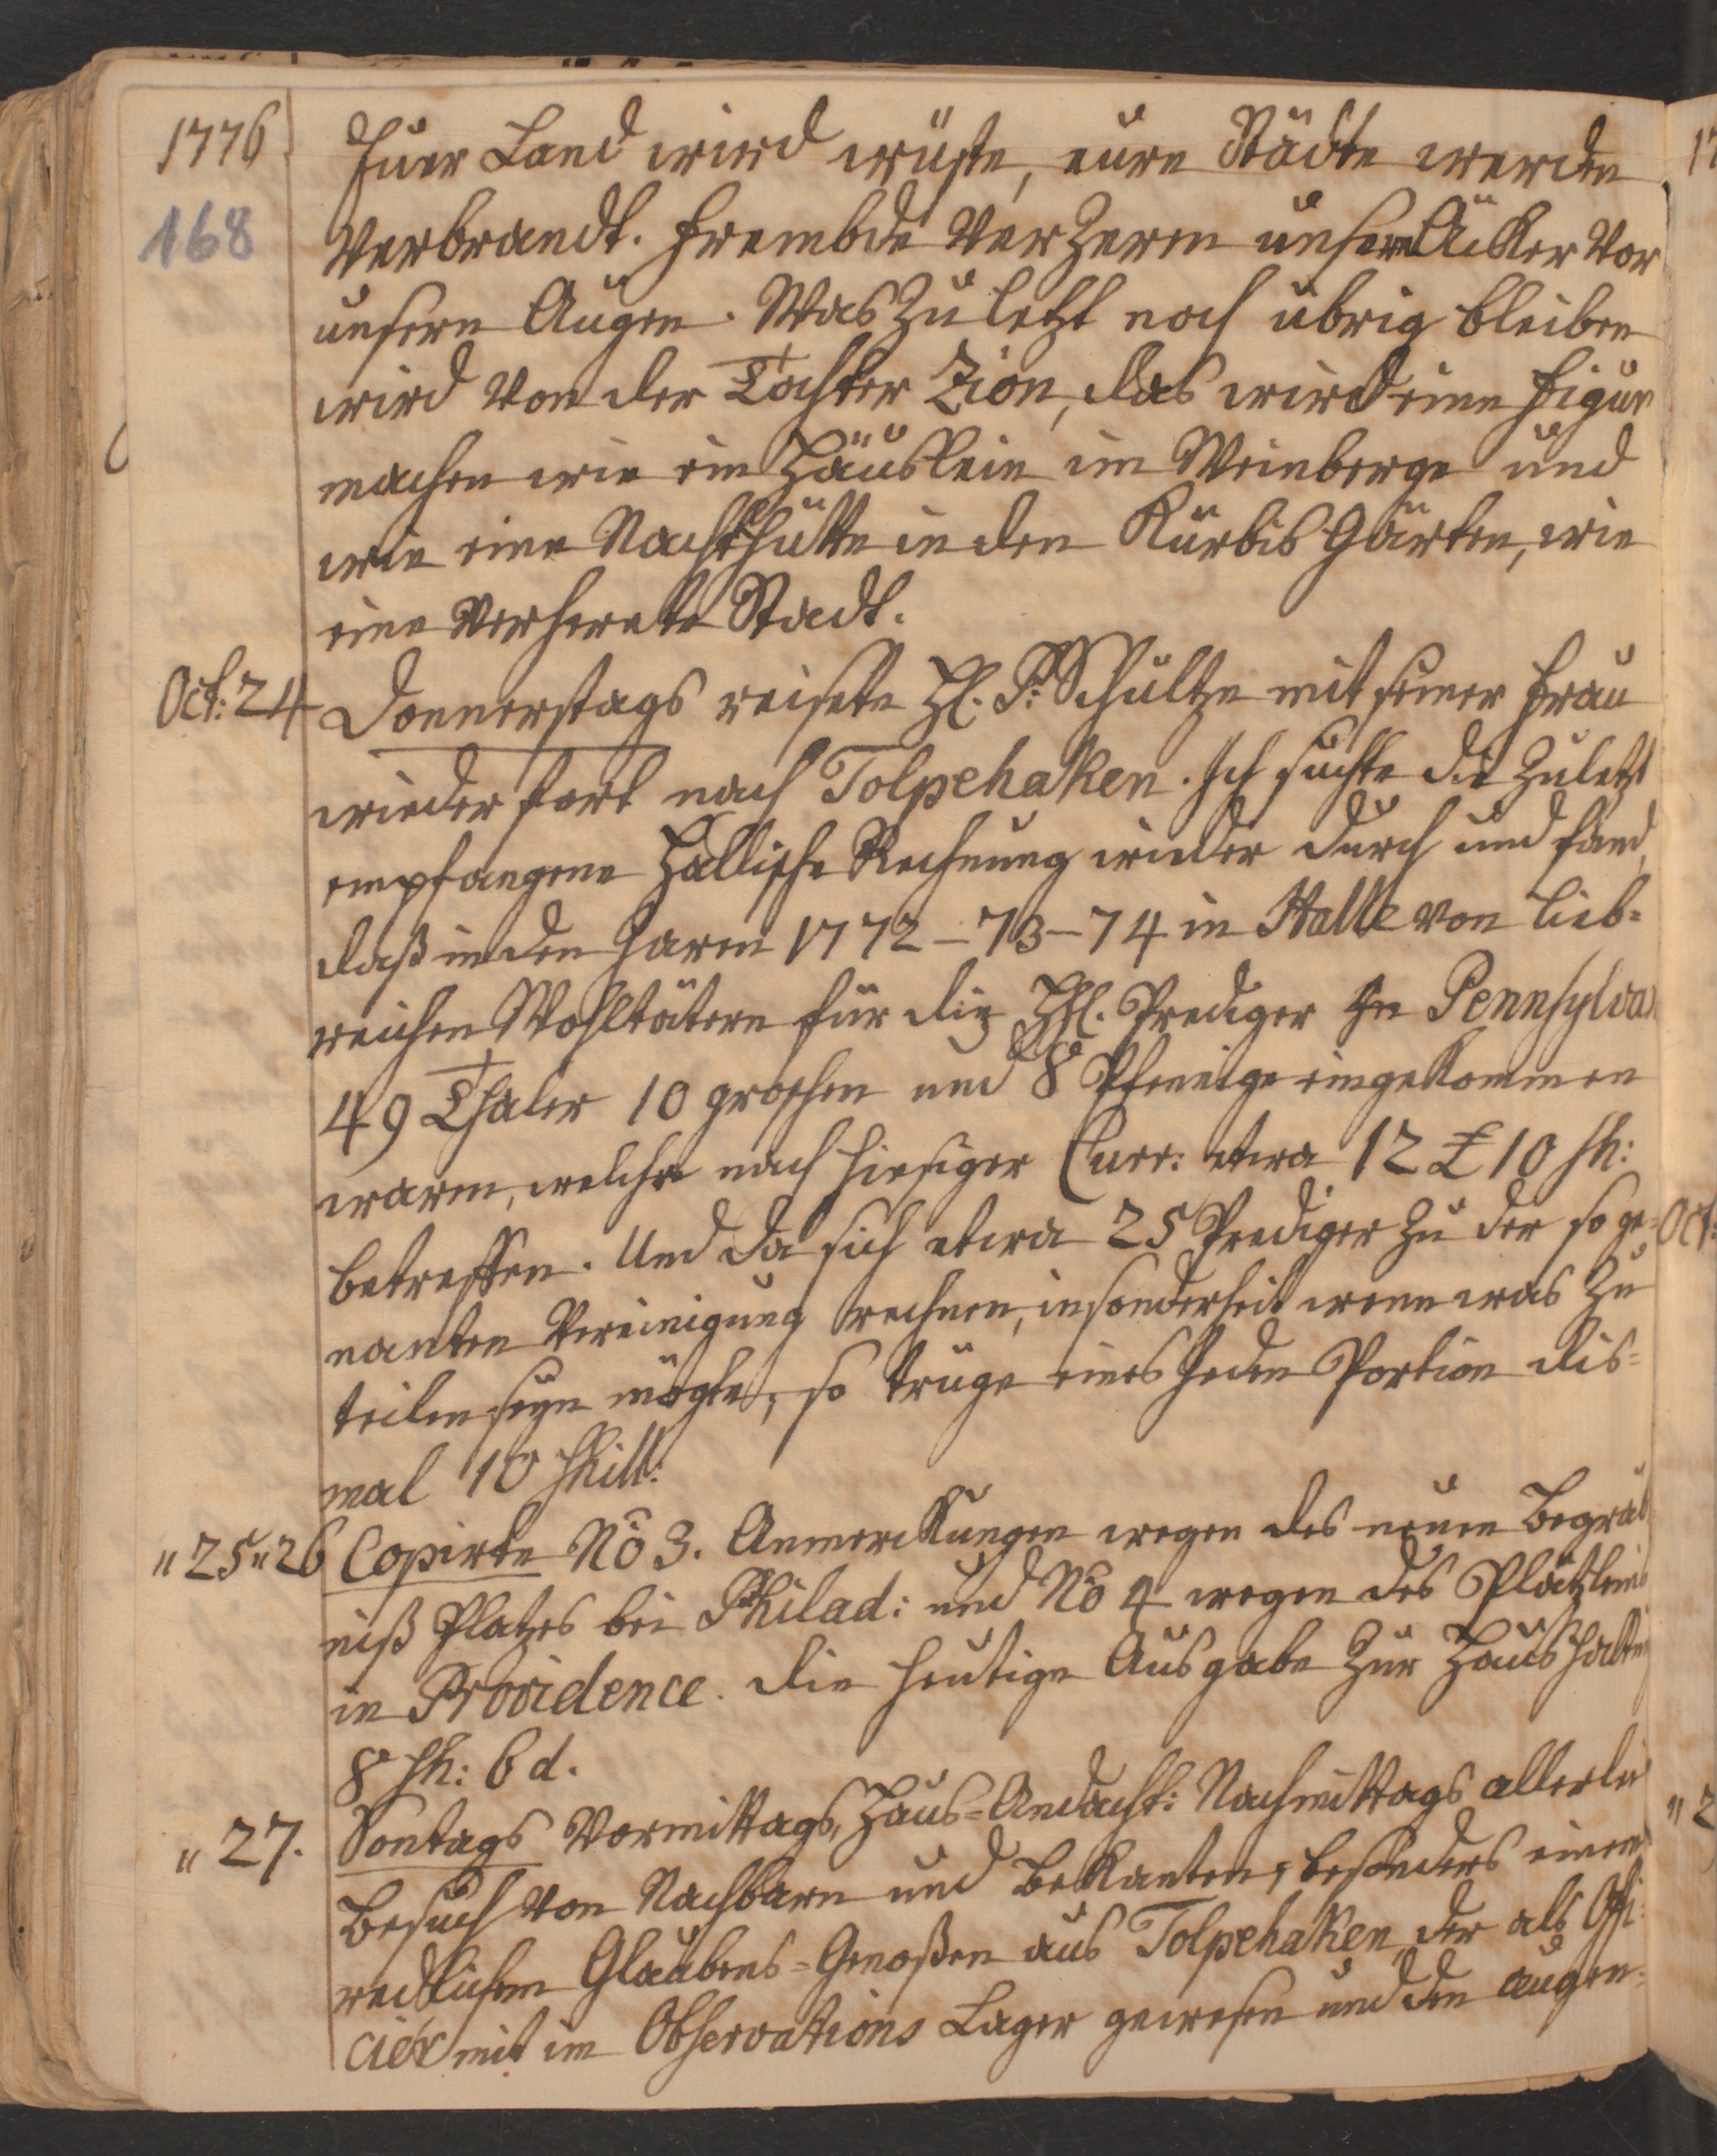 1776
168
Euer Land wird wüste, eure Städte werden
verbrandt. Frembde verzeren unsere Äcker vor
unsern Augen. Was zu letzt noch übrig bleiben
wird von der Tochter Zion, das wird eine Figur
machen wie ein Häuslein im Weinberge und
wie eine Nachthütte in den Kürbis Gärten, wie
eine verheerete Stadt.
Oct: 24 Donnerstags reisete H. P. Schultze mit seiner Frau
wieder fort nach Tolpehaken. Ich suchte die zuletzt
empfangene Hallische Rechnung wieder durch und fand,
daß in den Jaren 1772–73–74 in Halle von lieb=
reichen Wohltätern für die HH. Prediger in Pennsylva
49 Thaler 10 groschen und 8 Pfennige eingekommen
waren, welche nach hiesiger Curr: etwa 12 £ 10 sh:
betreffen. Und da sich etwa 25 Prediger zu der so ge=
nanten Vereinigung rechnen, insonderheit wenn was zu
teilen seyn mögte, so trüge eines jeden Portion dis=
mal 10 shill:
" 25 " 26 Copirte No 3. Anmerckungen wegen des neuen Begräb
niß Platzes bei Philad: und No 4 wegen des Plätzleins
in Providence. die heutige Ausgabe zur Haushalten
8 sh: 6 d.
" 27. Sontags Vormittags, Haus=Andacht: Nachmittags allerlei
Besuch von Nachbarn und Bekanten, besonders einen
redlichen Glaubens=Genoßen aus Tolpehaken, der als Offi=
cier mit im Observations Lager gewesen und den augen=